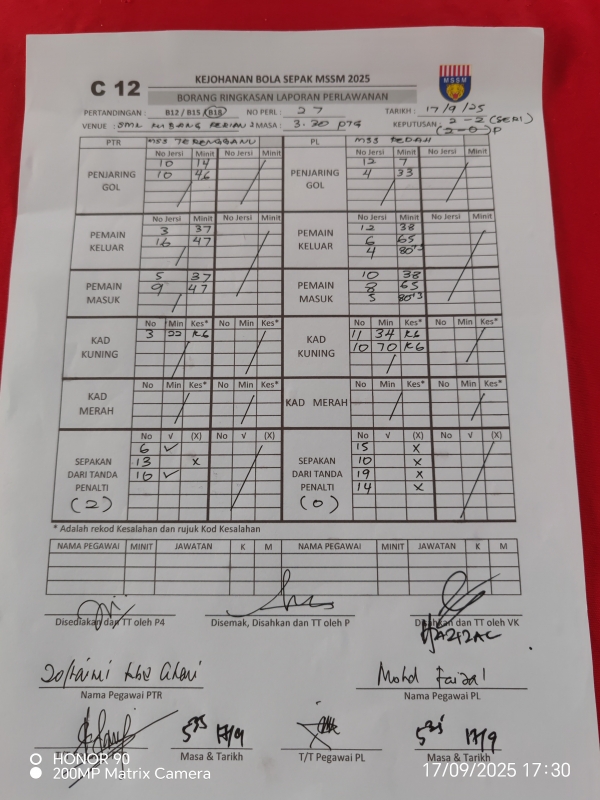 C 12
KEJOHANAN BOLA SEPAK MSSM 2025
MSSM
BORANG RINGKASAN LAPORAN PERLAWANAN
PERTANDINGAN : B12 / B15 / B18 NO PERL : 27 TARIKH : 17/9/25
VENUE : SMK MASA : 3.30 ptg KEPUTUSAN : 2-2 (SERI)
(2-0)P
PTR MSS TERENGGANU PL MSS KEDAH
PENJARING GOL No Jersi Minit No Jersi Minit PENJARING GOL No Jersi Minit No Jersi Minit
10 14 12 7
10 46 4 33
PEMAIN KELUAR No Jersi Minit No Jersi Minit PEMAIN KELUAR No Jersi Minit No Jersi Minit
3 37 12 38
16 47 6 65
4 80+3
PEMAIN MASUK PEMAIN MASUK
5 37 10 38
9 47 8 65
5 80+3
KAD KUNING No Min Kes* No Min Kes* KAD KUNING No Min Kes* No Min Kes*
3 22 K6 11 34 K6
10 70 K6
KAD MERAH No Min Kes* No Min Kes* KAD MERAH No Min Kes* No Min Kes*
SEPAKAN DARI TANDA PENALTI No √ (X) No √ (X) SEPAKAN DARI TANDA PENALTI No √ (X) No √ (X)
6 ✓ 15 X
13 X 10 X
10 ✓ 19 X
14 X
(2) (0)
* Adalah rekod Kesalahan dan rujuk Kod Kesalahan
NAMA PEGAWAI MINIT JAWATAN K M NAMA PEGAWAI MINIT JAWATAN K M
Disediakan dan TT oleh P4 Disemak, Disahkan dan TT oleh P Disahkan dan TT oleh VK
Mohd Faizal
Nama Pegawai PTR Nama Pegawai PL
17/9 17/9
Masa & Tarikh T/T Pegawai PL Masa & Tarikh
HONOR 90
200MP Matrix Camera
17/09/2025 17:30